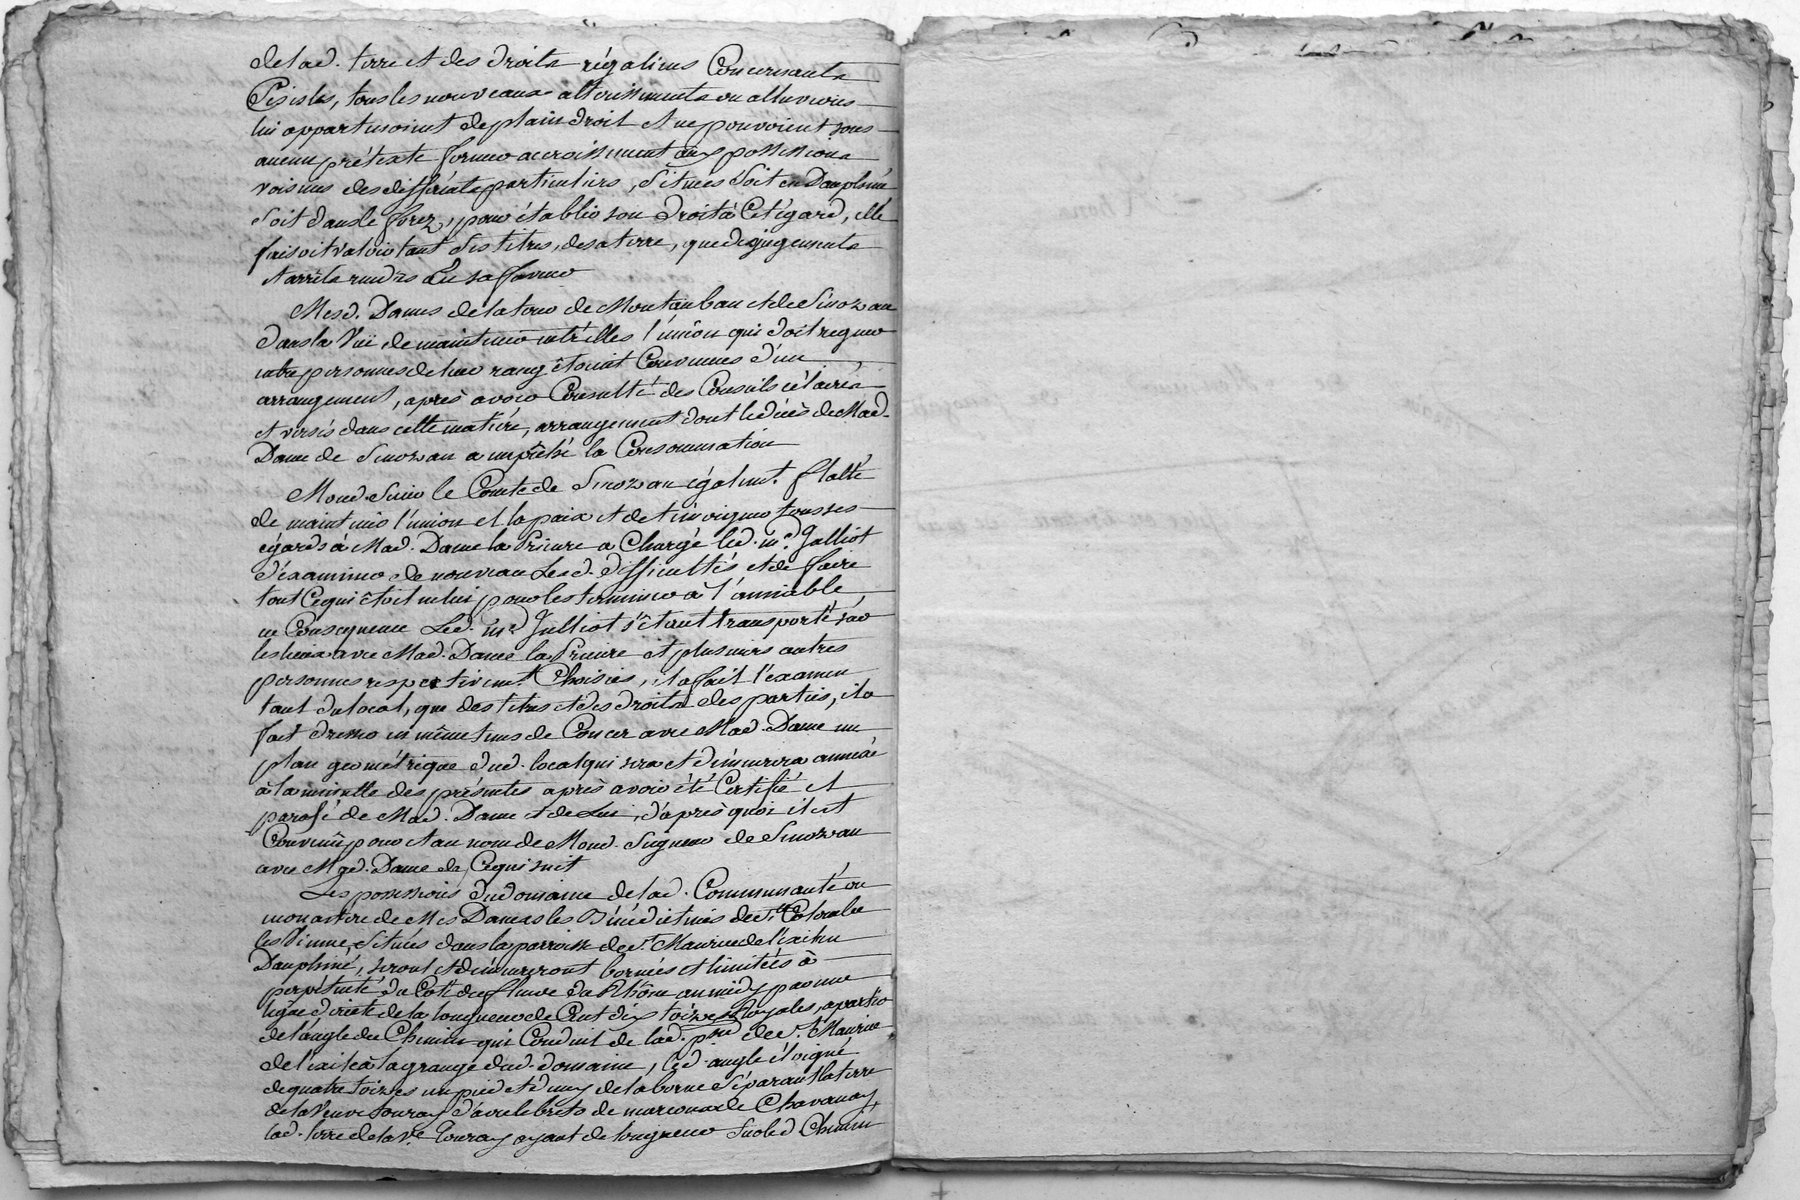 delad. terre et des droits régaliens Concernants
Ses isles, tous les nouveaux attérissements ou alluvions
lui appartenoient de plain droit et ne pouvoient sous
aucun prétexte former accroissement aux possessions
voisines des differents particuliers, situées soit en Dauphiné
soit dans le forez, pour établir son droit à Cet égard, elle
faisoit valoir tant ses titres, de sa terre, que des jugements
et arrêts rendus en sa faveur
Mesd. Dames de la tour de Montauban et de Sinozan
dans la Vüe de maintenir entr'elles l'union qui doit regner
entre personnes de leur rang étoient Convenues d'un
arrangement, après avoir Consulté des Conseils éclairés
et versés dans cette matiére, arrangement dont le décès de Mad.
Dame de Sinozan a empêché la Consommation
Mond. Seignr le Comte de Sinozan égalemt. flatté
de maintenir l'union et la paix et de témoigner tous ses
égards à Mad. Dame la Prieure a Chargé led. me. Julliot
d'éxaminer de nouveau Lesd. difficultés et de faire
tout Cequi étoit en lui pour les terminer à l'amiable,
en Conséquence Led. me. Julliot s'étant transporté sur
les lieux avec Mad. Dame la Prieure et plusieurs autres
personnes respectivemt. Choisies, il a fait l'éxamen
tant du local, que des titres et des droits des parties, il a
fait dresser en même tems de Concer avec Mad. Dame un
plan geométrique dud. local qui sera et demeurera annéxé
à la minutte des présentes après avoir été Certifié et
parafé de Mad. Dame et de Lui, d'après quoi il est
Convenû pour et au nom de Mond. Seigneur de Sinozan
avec Mad. Dame de Cequi suit
Les possessions du domaine delad. Communauté ou
monastere de Mes Dames les Bénédictines de Ste. Colombe
les Vienne, situées dans la parroisse de St. Maurice de l'éxil en
Dauphiné, seront et demeureront bornées et limitées à
perpétuité du Coté du fleuve du Rhône au midy par une
ligne droite de la longueur de Cent dix toises Royales, a partir
de l'angle du Chemin qui Conduit de lad. psse de St. Maurice
de l'éxil à la grange dud. domaine, led. angle éloigné
de quatre toises un pied et demy de la borne séparant la terre
de la Veuve Gouray d'avec le breto de Chavanay,
lad. terre de la ve. Gouray ayant de longueur sur led. Chemin